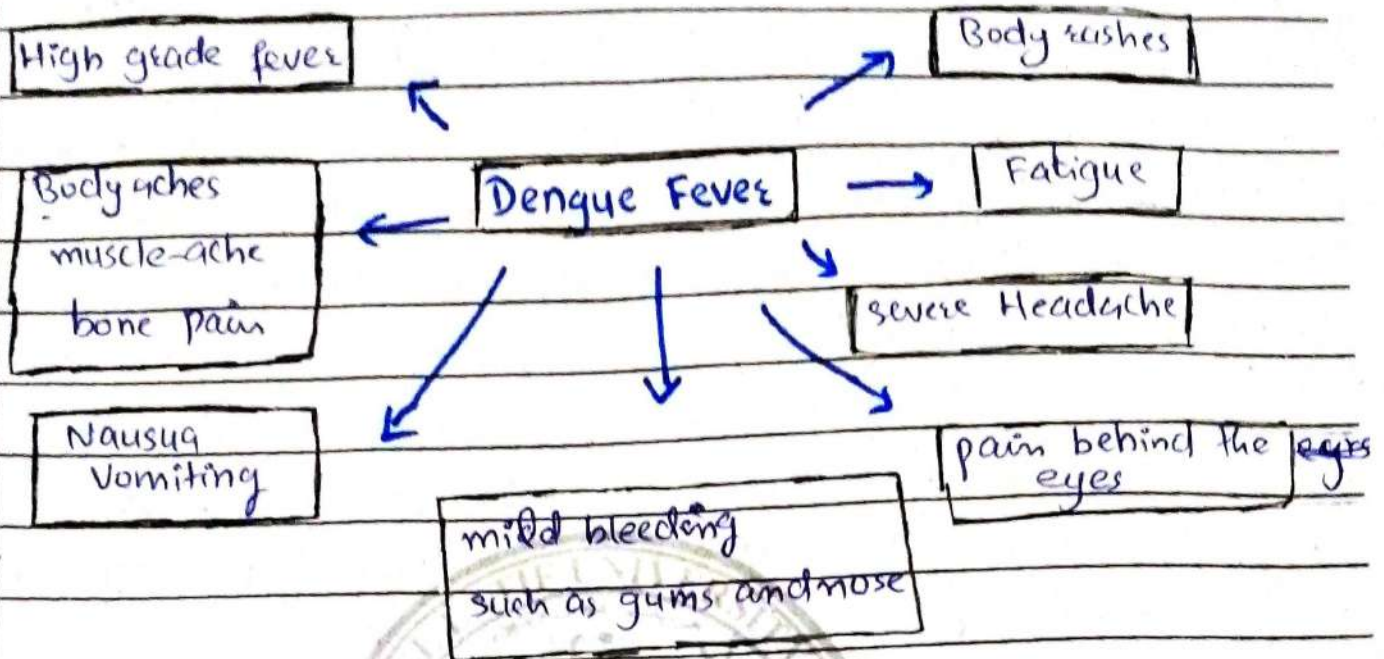 High grade fever
Body rashes
Body aches
muscle-ache
bone pain
Dengue Fever
Fatigue
severe Headache
Nausua
Vomiting
pain behind the
eyes
mild bleeding
such as gums and nose